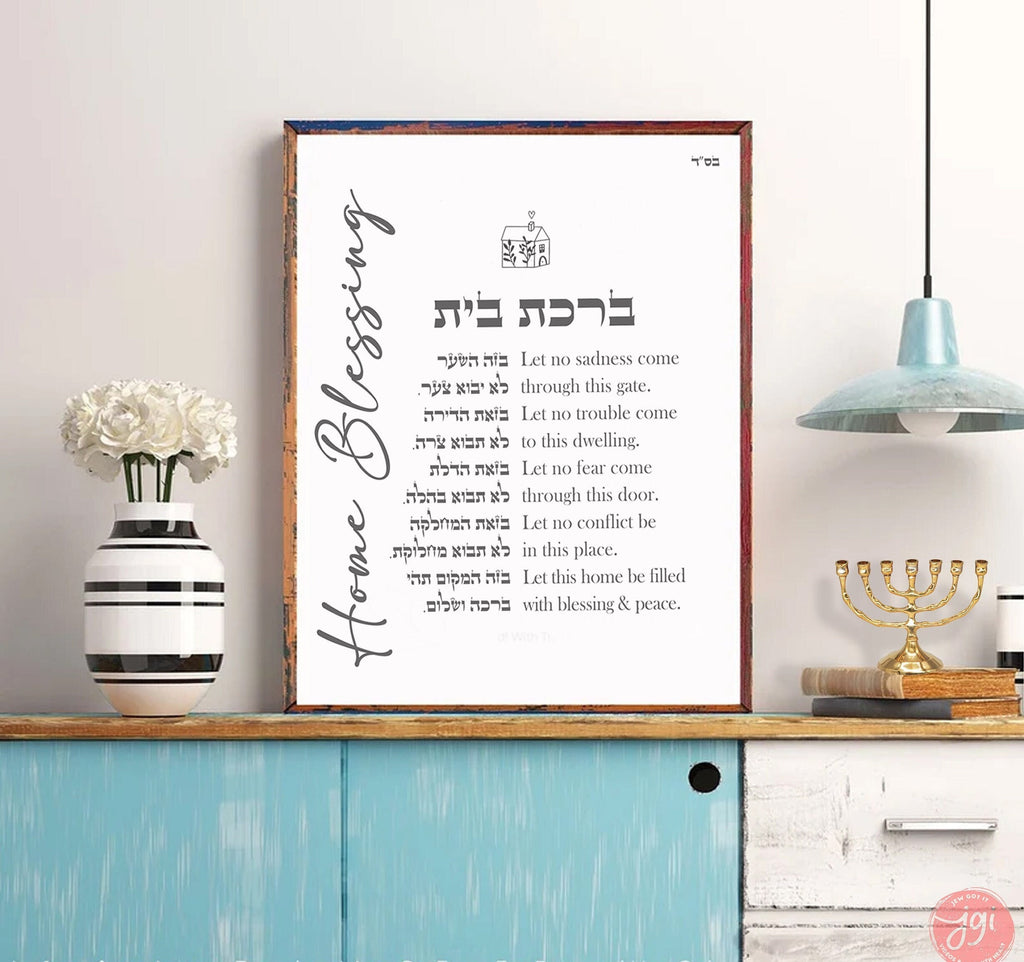 בס״ד
Home Blessing
ברכת בית
בזה השער Let no sadness come
לא יבוא צער. through this gate.
בזאת הדירה Let no trouble come
לא תבוא צרה. to this dwelling.
בזאת הדלת Let no fear come
לא תבוא בהלה. through this door.
בזאת המחלקה Let no conflict be
לא תבוא מחלוקת. in this place.
בזה המקום תהי Let this home be filled
ברכה ושלום. with blessing & peace.
With
SEW GOT IT
jgi